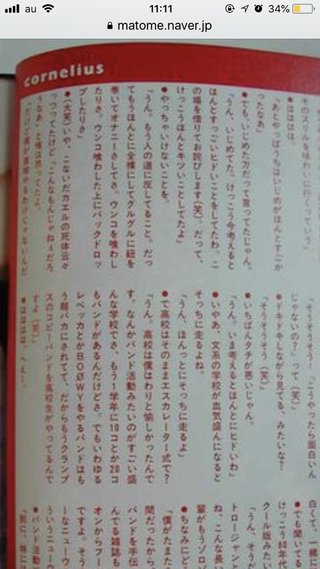 au
11:11
34%
matome.naver.jp
cornelius
●ははは。
ったなあ」
●でも、いじめた方だって言ってたじゃん。
「うん。いじめてた。けっこう今考えると
ほんとすっごいひどいことをしてたわ。こ
の場を借りてお詫びします（笑）だって、
けっこうほんとキツいことしてたよ」
●やっちゃいけないことを。
「うん。もう人の道に反してること。だっ
てもうほんとに全裸にしてグルグルに紐を
巻いてオナニーさしてさ。ウンコを喰わし
たりさ。ウンコ喰わした上にバックドロッ
プしたりさ」
●（大笑）いや、こないだカエルの死体云々
っつってたけど、こんなもんじゃねぇだろ
うなあと俺は思ってたよ。
「だけど僕が直接やるわけじゃないんだ
じゃないの？」って（笑）
ドキドキしながら見てる、みたいな？
「そうそうそう（笑）」
●いちばんタチが悪いじゃん。
「うん。いま考えるとほんとにヒドいわ」
●いやあ、文系の学校が血気盛んになると
そっちに走るよね。
「うん。ほんっとにそっちに走るよ」
●で高校はそのままエスカレーター式で？
「うん。高校は僕はわりと愉しかったんで
す。なんかバンド活動みたいのがすごい盛
んな学校でさ、もう1学年に10コとか20コ
もバンドがあるんだけどさ。でもいわゆる
レベッカとかBOØWYをやるバンドはも
う超バカにされてて、だからもうクランプ
スのコピーバンドを高校生がやってるんで
すよ（笑）」
●はははは、へぇー。